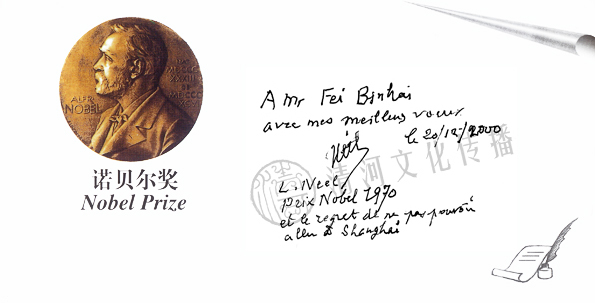 ALFR
NOBEL
诺贝尔奖
Nobel Prize
A Mr Fei Binhai
avec mes meilleurs voeux
le 20/12/2000
L. Néel
prix Nobel 1970
et le regret de ne pas pouvoir
aller à Shanghai
清河文化传播